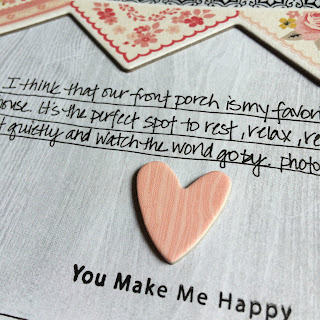 I think that our front porch is my favori
ouse. It's the perfect spot to rest, relax, re
t quietly and watch the world go by. photo
You Make Me Happy